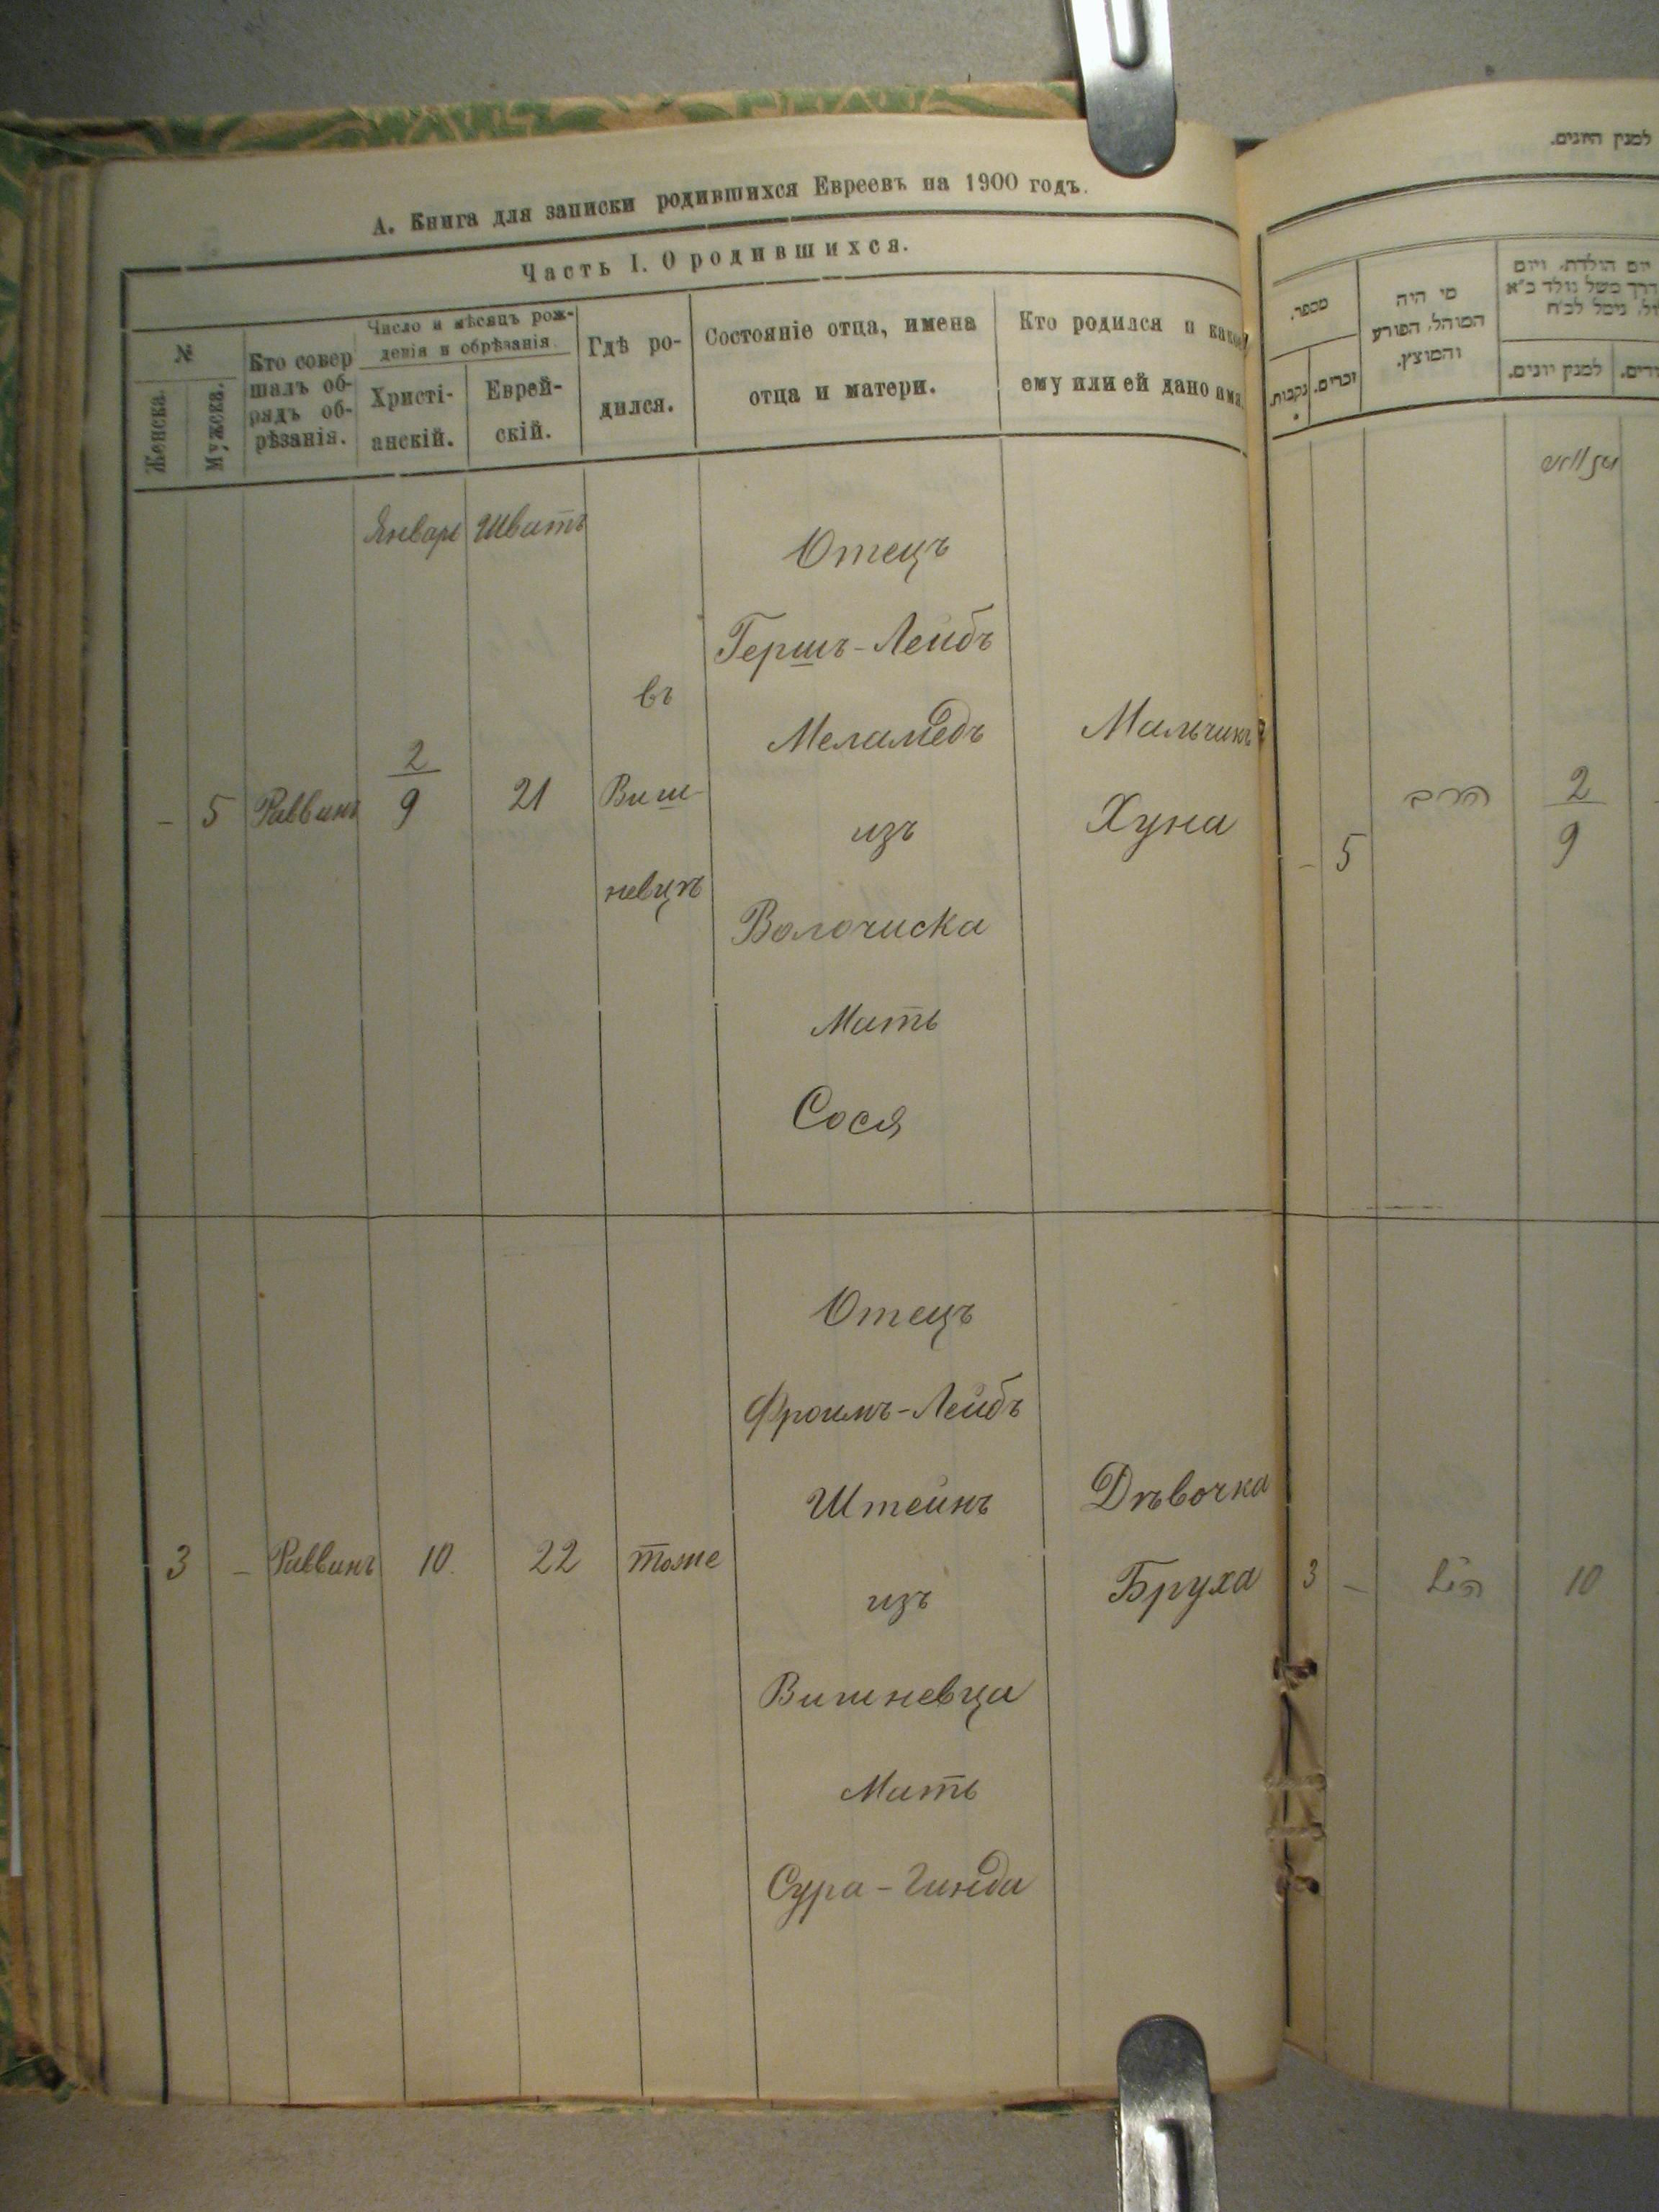 А. Книга для записки родившихся Евреевъ на 1900 годъ.
Часть I. О родившихся.
№
Женска.
Мужска.
Кто совер
шалъ об-
рядъ об-
рѣзанія.
Число и мѣсяцъ рож-
денія и обрѣзанія.
Христі-
анскій.
Еврей-
скій.
Гдѣ ро-
дился.
Состояніе отца, имена
отца и матери.
Кто родился и какое
ему или ей дано имя.
Январь
Шватъ
–
5
Раввинъ
2
9
21
въ
Виш-
невцѣ
Отецъ
Гершъ-Лейбъ
Меламедъ
изъ
Волочиска
Мать
Сося
Мальчикъ
Хуна
3
–
Раввинъ
10.
22
тоже
Отецъ
Фроимъ-Лейбъ
Штейнъ
изъ
Вишневца
Мать
Сура-Гинда
Дѣвочка
Бруха
למנין היונים.
מספר.
נקבות.
זכרים.
מי היה
המוהל, הפורע
והמוצץ.
יום הולדת, ויום
למנין יונים.
–
5
הרב
2
9
3
–
10